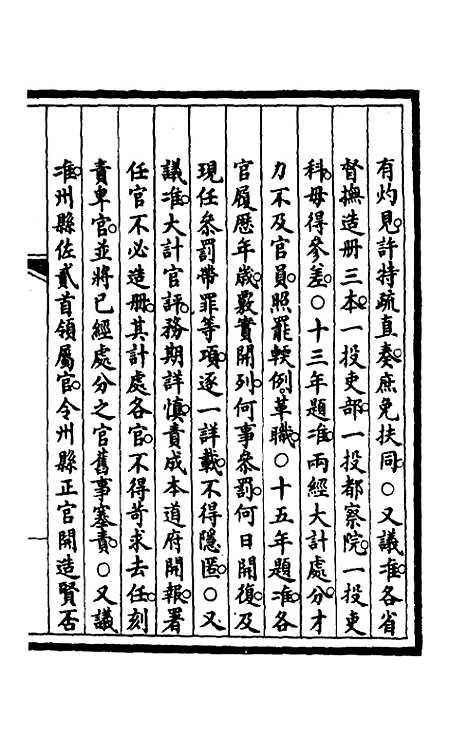 有灼見許持疏直奏庶免扶同○又議准各省
督撫造册三本一投吏部一投都察院一投吏
科毋得參差○十三年題准兩經大計處分才
力不及官員照罷輭例革職○十五年題准各
官履歷年歲覈實開列何事叅罰何日開復及
現任叅罰帶罪等項逐一詳載不得隱匿○又
議准大計官評務期詳慎責成本道府開報署
任官不必造册其計處各官不得苛求去任刻
責卑官並將已經處分之官舊事塞責○又議
准州縣佐貳首領屬官令州縣正官開造賢否